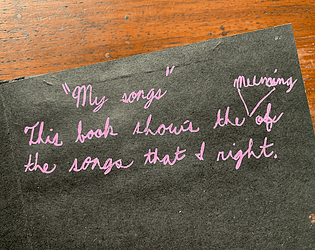 "My songs"
Meaning
This book shows the of
the songs that I right.